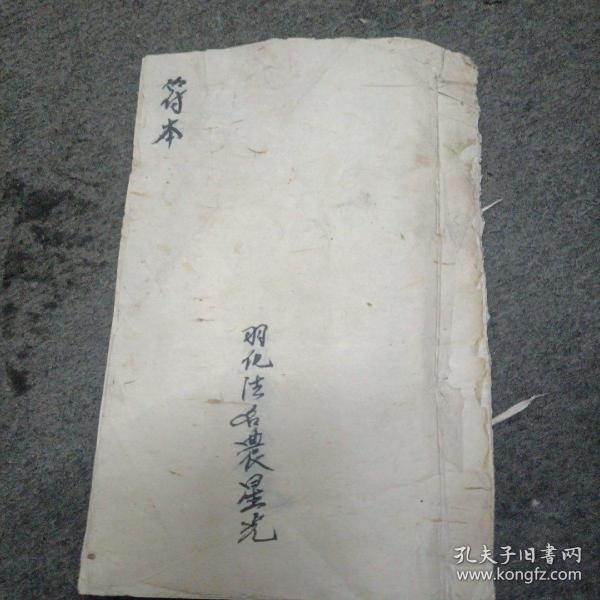 符本
羽化法名農星光
孔夫子旧书网
www.kongfz.com